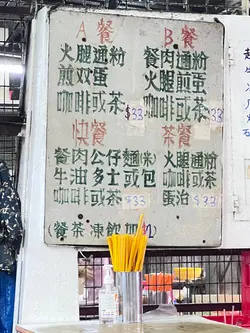 A餐
火腿通粉
煎双蛋
咖啡或茶
$33
B餐
餐肉通粉
火腿煎蛋
咖啡或茶
$33
快餐
餐肉公仔麵(米)
牛油多士或包
咖啡或茶
$33
茶餐
火腿通粉
蛋治
$33
(餐茶凍飲加